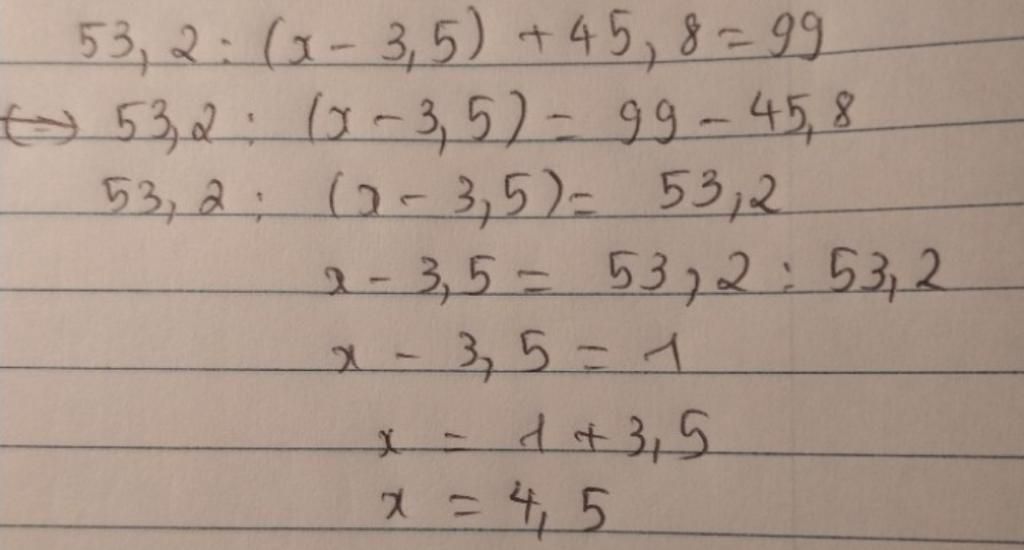 53,2 : (x - 3,5) + 45,8 = 99
<=> 53,2 : (x - 3,5) = 99 - 45,8
53,2 : (x - 3,5) = 53,2
x - 3,5 = 53,2 : 53,2
x - 3,5 = 1
x = 1 + 3,5
x = 4,5